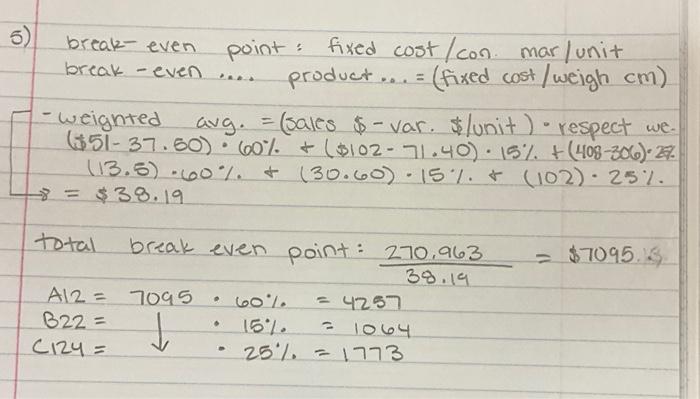 5) break-even point : fixed cost/con. mar/unit
break-even .... product ... = (fixed cost/weigh cm)
- weighted avg. = (sales $ - var. $/unit) • respect we.
($51- 37.50) • 60% + ($102-71.40) • 15% + (408-306) • 25%
(13.5) • 60% + (30.60) • 15% + (102) • 25%.
= $38.19
total break even point : 270,963 = $7095.
38.19
A12 = 7095 • 60% = 4257
B22 = ↓ • 15% = 1064
C124 = • 25% = 1773